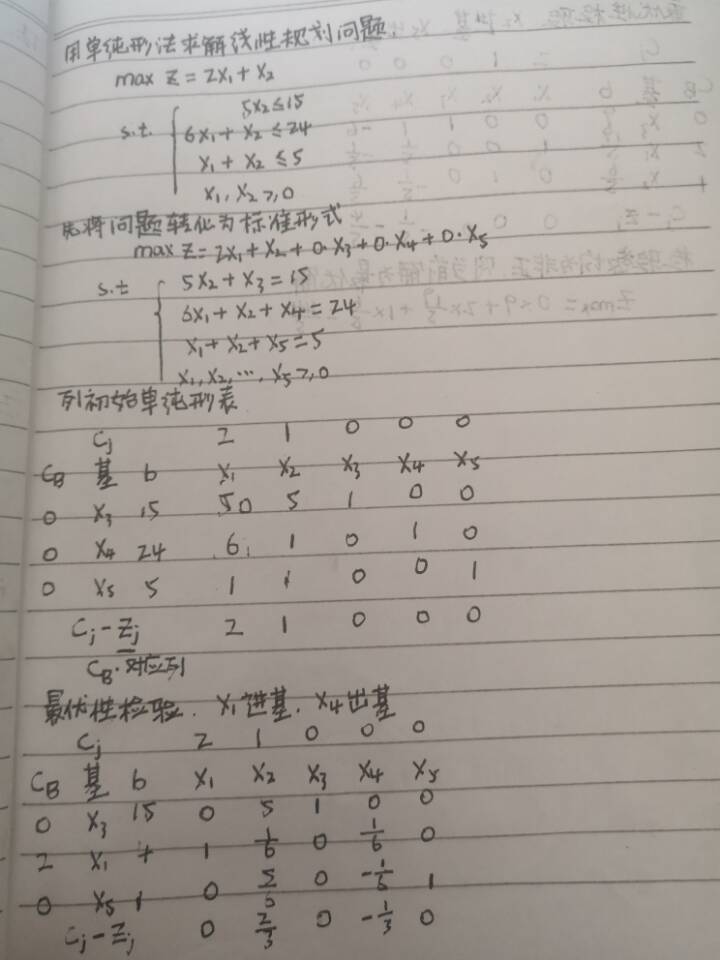 用单纯形法求解线性规划问题
max Z = 2X₁ + X₂
5X₂ ≤ 15
s.t. 6X₁ + X₂ ≤ 24
X₁ + X₂ ≤ 5
X₁, X₂ ≥ 0
先将问题转化为标准形式
max Z = 2X₁ + X₂ + 0·X₃ + 0·X₄ + 0·X₅
s.t 5X₂ + X₃ = 15
6X₁ + X₂ + X₄ = 24
X₁ + X₂ + X₅ = 5
X₁, X₂, ⋯, X₅ ≥ 0
列初始单纯形表
Cj 2 1 0 0 0
CB 基 b X₁ X₂ X₃ X₄ X₅
0 X₃ 15 0 5 1 0 0
0 X₄ 24 6 1 0 1 0
0 X₅ 5 1 1 0 0 1
Cj - Zj 2 1 0 0 0
CB·对应列
最优性检验. X₁进基, X₄出基
Cj 2 1 0 0 0
CB 基 b X₁ X₂ X₃ X₄ X₅
0 X₃ 15 0 5 1 0 0
2 X₁ 4 1 1/6 0 1/6 0
0 X₅ 1 0 5/6 0 -1/6 1
Cj - Zj 0 2/3 0 -1/3 0